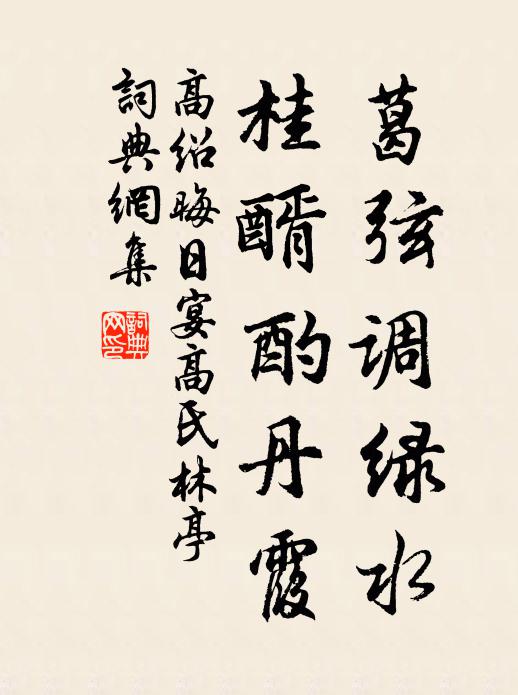 葛弦调绿水
桂醑酌丹霞
高绍晦日宴高氏林亭
詞典網集
詞典
网印